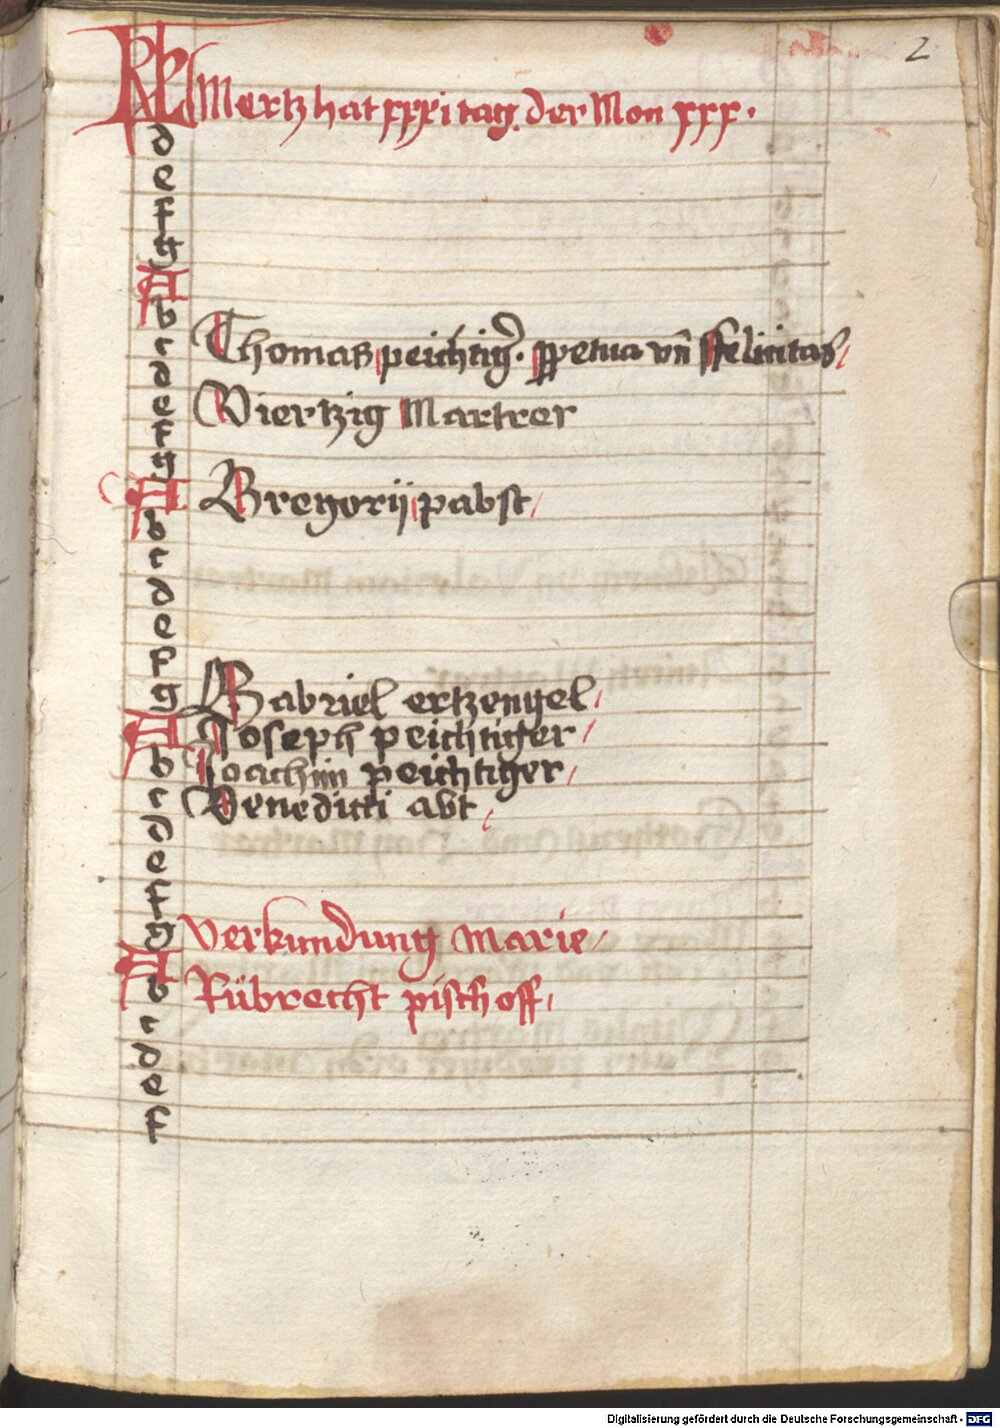 2
KL Mertz hat xxxi tag. der Mon xxx.
d
e
f
g
A
b
c Thomas peichtig̉. ꝑpetua vn̄ ffelicitas /
d
e Viertzig Martrer
f
g
A Gregorij pabst /
b
c
d
e
f
g Gabriel ertzengel /
A Joseph peichtiger /
b Joachim peichtiger /
c Benedicti abt /
d
e
f
g Verkundung Marie /
A
b Rübrecht pischoff /
c
d
e
f
Digitalisierung gefördert durch die Deutsche Forschungsgemeinschaft - DFG